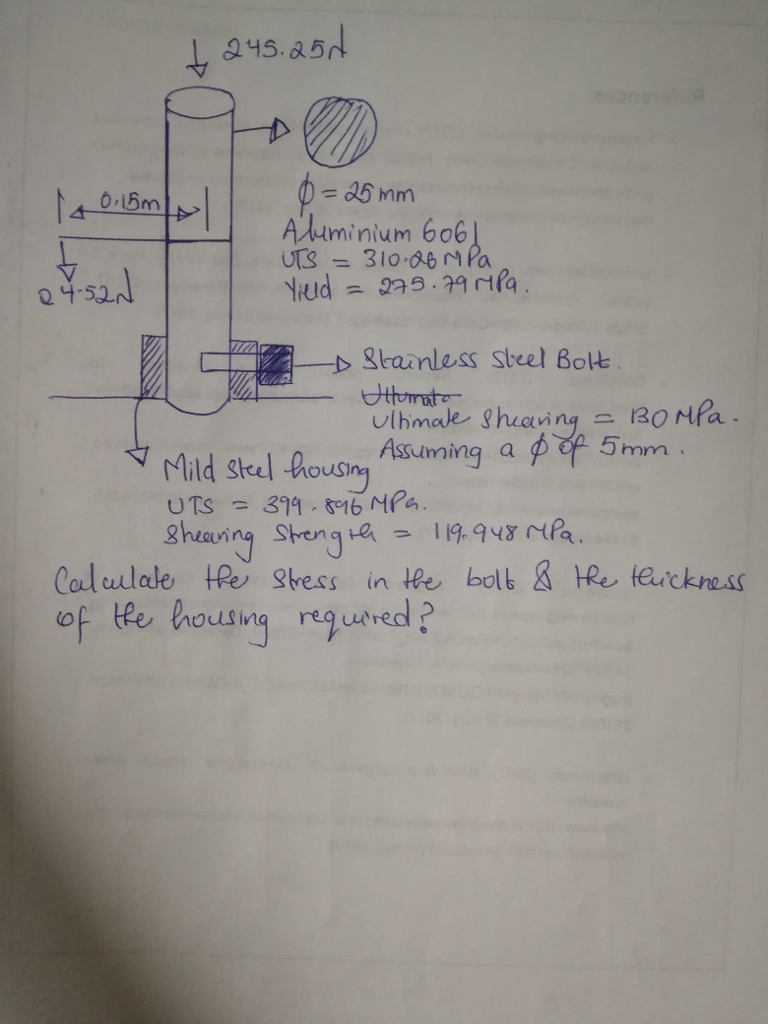 245.25N
0.15m
24.52N
ϕ = 25mm
Aluminium 6061
UTS = 310.26 MPa
Yield = 275.79 MPa.
Stainless Steel Bolt.
Ultimate Shearing = 130 MPa.
Assuming a ϕ of 5mm.
Mild Steel housing
UTS = 399.896 MPa.
Shearing Strength = 119.948 MPa.
Calculate the stress in the bolt & the thickness
of the housing required?